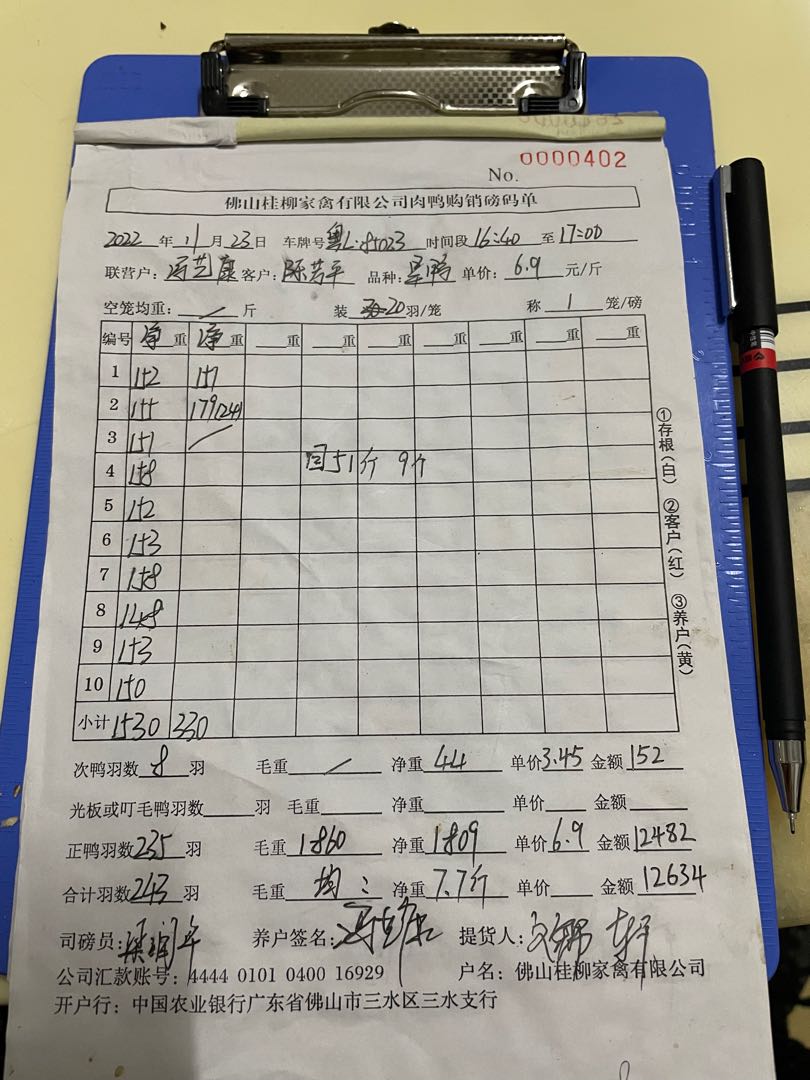 No. 0000402
佛山桂柳家禽有限公司肉鸭购销磅码单
2022 年 11 月 23 日 车牌号 粤L·85023 时间段 16:40 至 17:00
联营户: 冯艺康 客户: 陈芳平 品种: 单价: 6.9 元/斤
空笼均重: / 斤 装 20 羽/笼 称 1 笼/磅
编号 净重 净重 重 重 重 重 重 重
1 152 151
2 155 179(24)
3 151 /
4 158 回51斤 9个
5 152
6 153
7 158
8 148
9 153
10 150
小计 1530 330
次鸭羽数 8 羽 毛重 / 净重 44 单价 3.45 金额 152
光板或叮毛鸭羽数 羽 毛重 净重 单价 金额
正鸭羽数 235 羽 毛重 1860 净重 1809 单价 6.9 金额 12482
合计羽数 243 羽 毛重 均: 净重 7.7斤 单价 金额 12634
司磅员: 养户签名: 冯艺康 提货人:
公司汇款账号: 4444 0101 0400 16929 户名: 佛山桂柳家禽有限公司
开户行: 中国农业银行广东省佛山市三水区三水支行
①存根(白) ②客户(红) ③养户(黄)